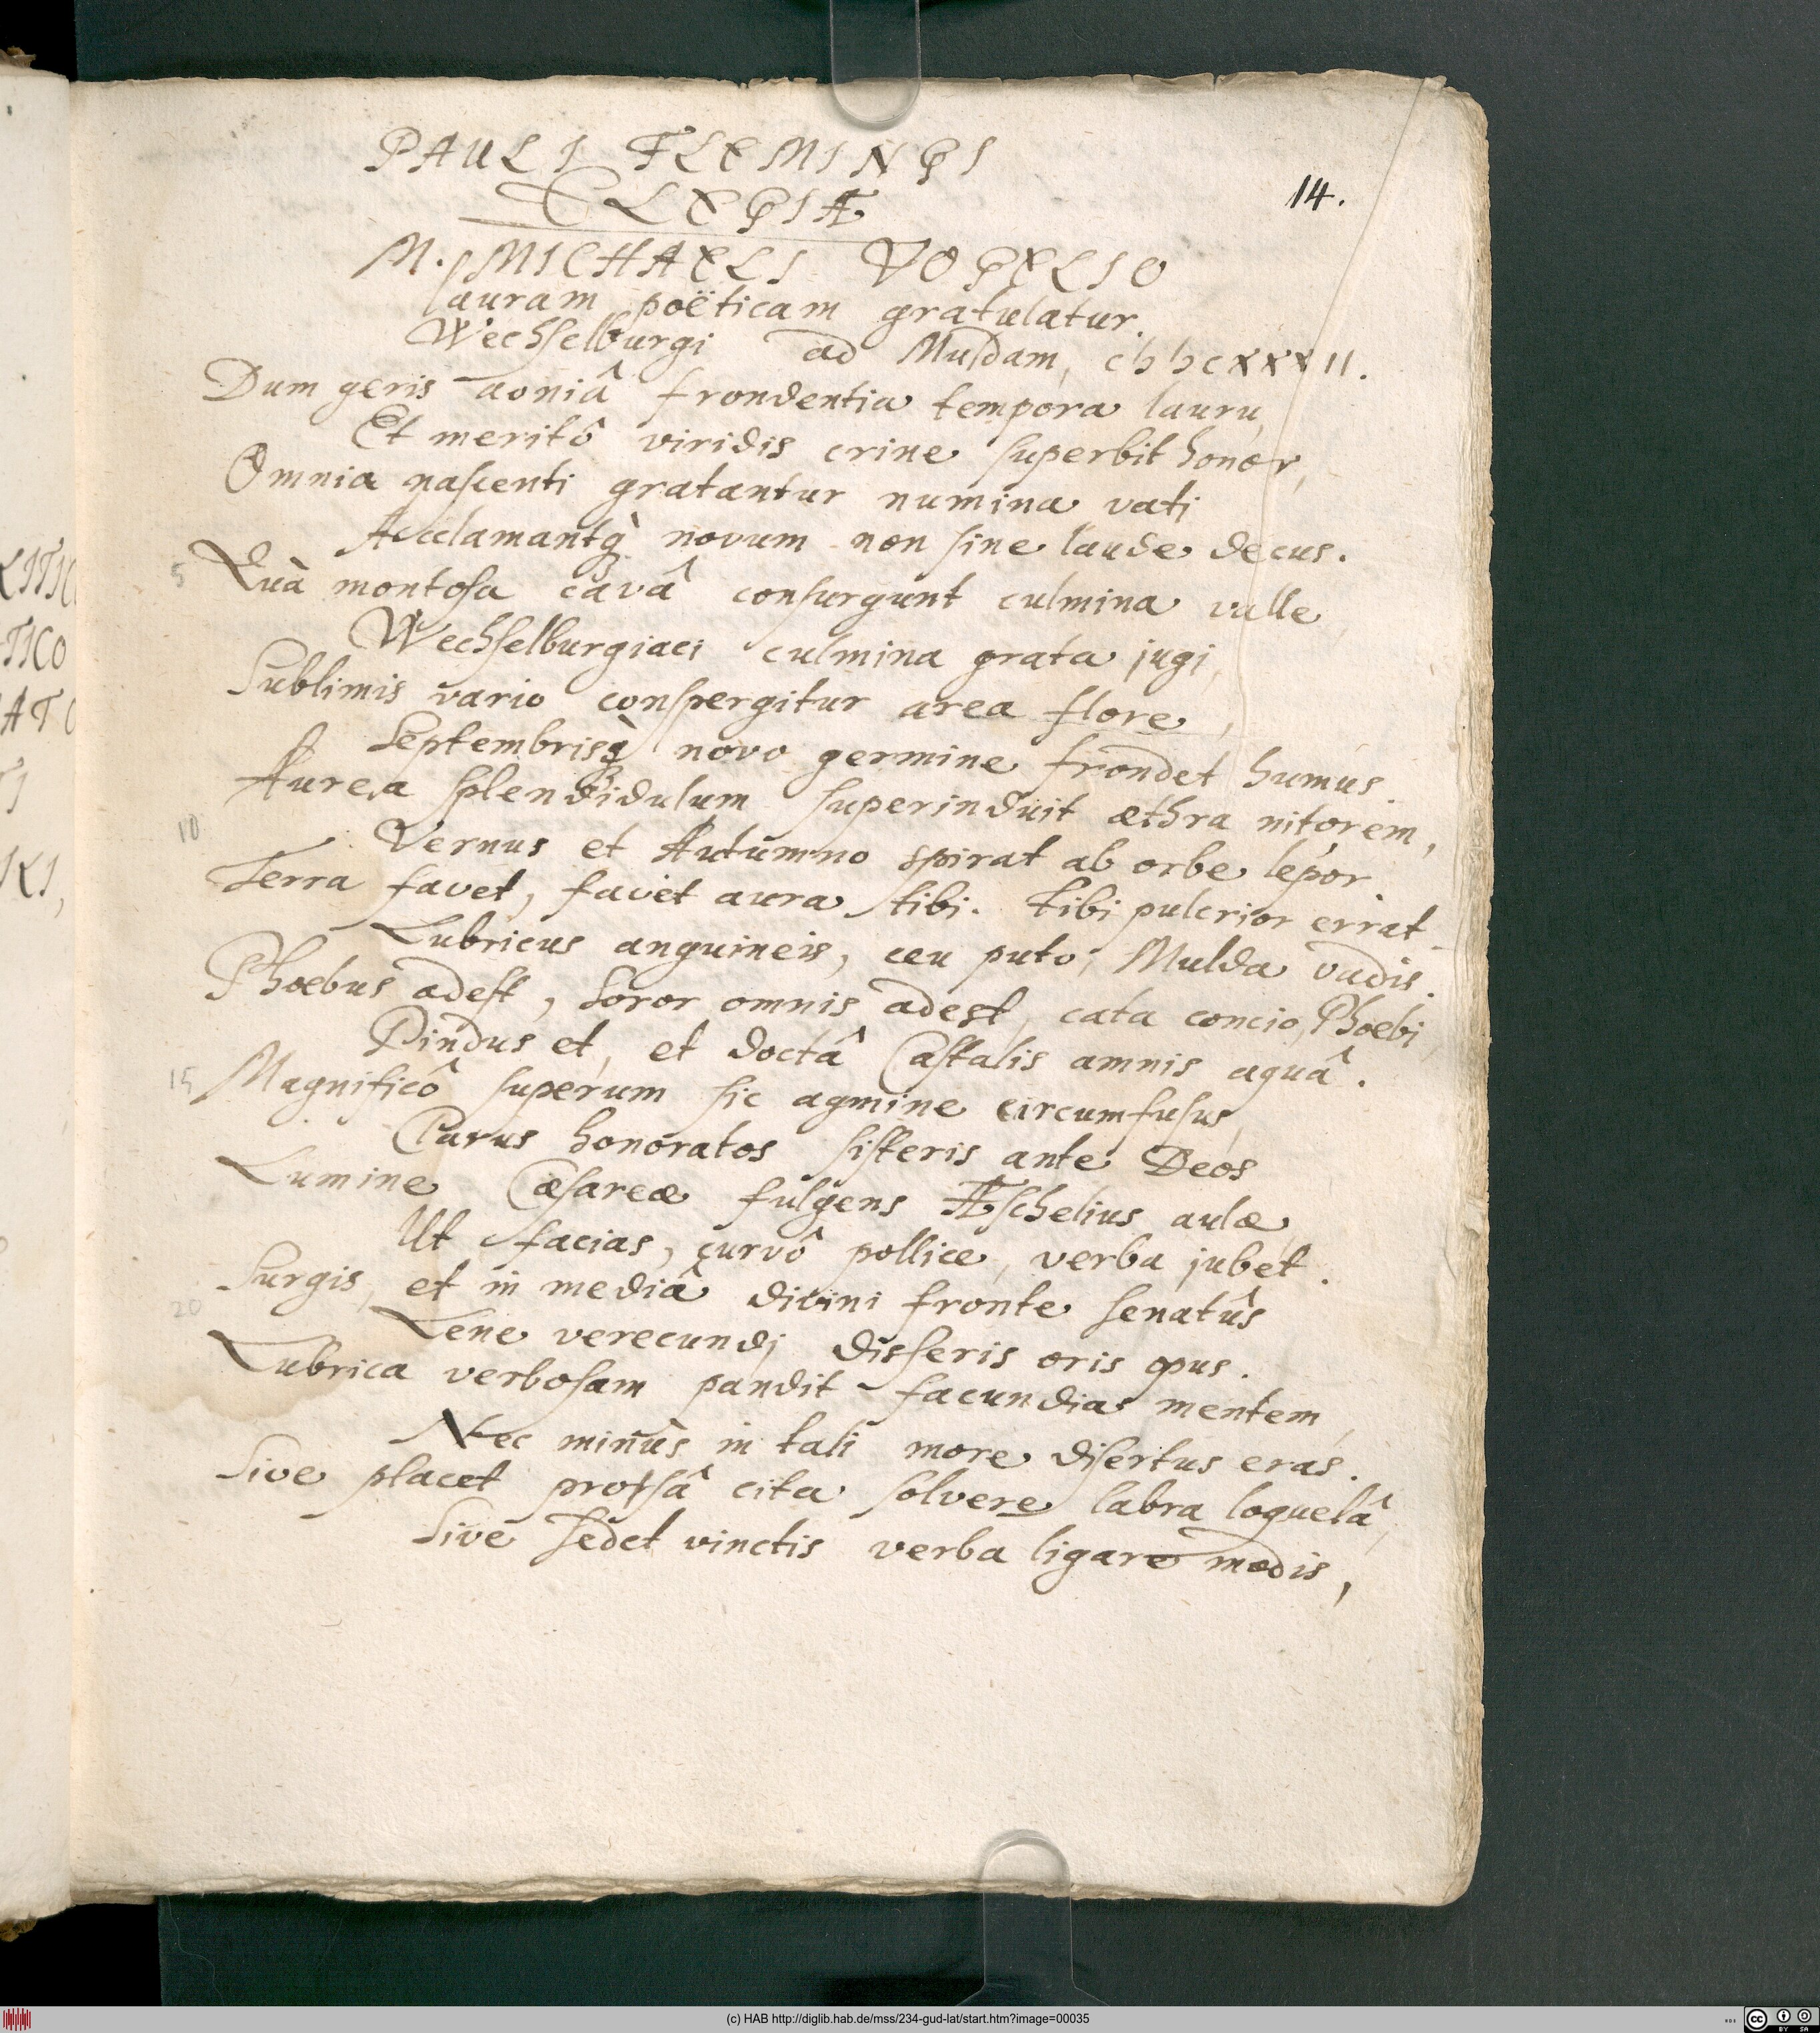 PAULI FLEMINGI
ELEGIÆ
14.
M. MICHAELI VOGELIO
lauram poëticam gratulatur.
Wechselburgi ad Muldam, cIↄ Iↄ c XXXII.
Dum geris aoniâ frondentia tempora lauru,
Et meritô viridis crine superbit honor,
Omnia nascenti gratantur numina vati
Acclamantq́ꝫ novum non sine laude decus.
5 Quà montosa cavâ consurgunt culmina valle,
Wechselburgiaci culmina grata jugi,
Sublimis vario conspergitur area flore,
Septembrisq́ꝫ novo germine frondet humus.
Aurea splendidulum superinduit æthra nitorem,
10 Vernus et Autumno spirat ab orbe lepor.
Terra favet, favet aura tibi. tibi pulcrior errat
Lubricus anguineis, ceu puto, Mulda vadis.
Phoebus adest, soror omnis adest, cata concio, Phoebi,
Pindus et, et doctâ Castalis amnis aquâ.
15 Magnificô superum sic agmine circumfusus,
Clarus honoratos sisteris ante Deos
Lumine Cæsareæ fulgens Æschelius aulæ,
Ut facias, curvô pollice, verba jubet.
Surgis, et in mediâ divini fronte senatûs
20 Lene verecundi disseris oris opus.
Lubrica verbosam pandit facundia mentem,
Nec minùs in tali more disertus eras.
Sive placet prorsâ cita solvere labra loquelâ,
Sive sedet vinctis verba ligare modis,
(c) HAB http://diglib.hab.de/mss/234-gud-lat/start.htm?image=00035